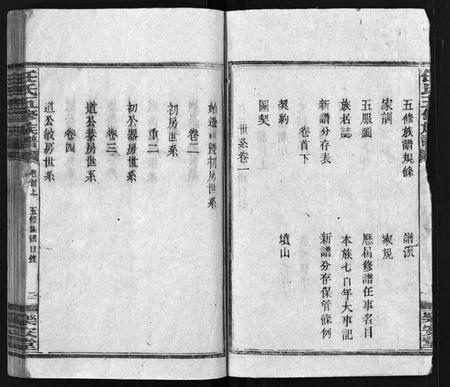 五修族譜規條 譜派
家訓 家規
五服圖 歷屆修譜任事名目
族居誌 本族七百年大事記
新譜分存表 新譜分存保管條例
卷首下
契約 墳山
圖契
世系卷一
始遷祖暨初房世系
卷二
初房世系
重二
初公器房世系
卷三
道公恭房世系
卷四
道公敏房世系
任氏五修族譜
卷首上
五修族譜目錄
二
樂安堂